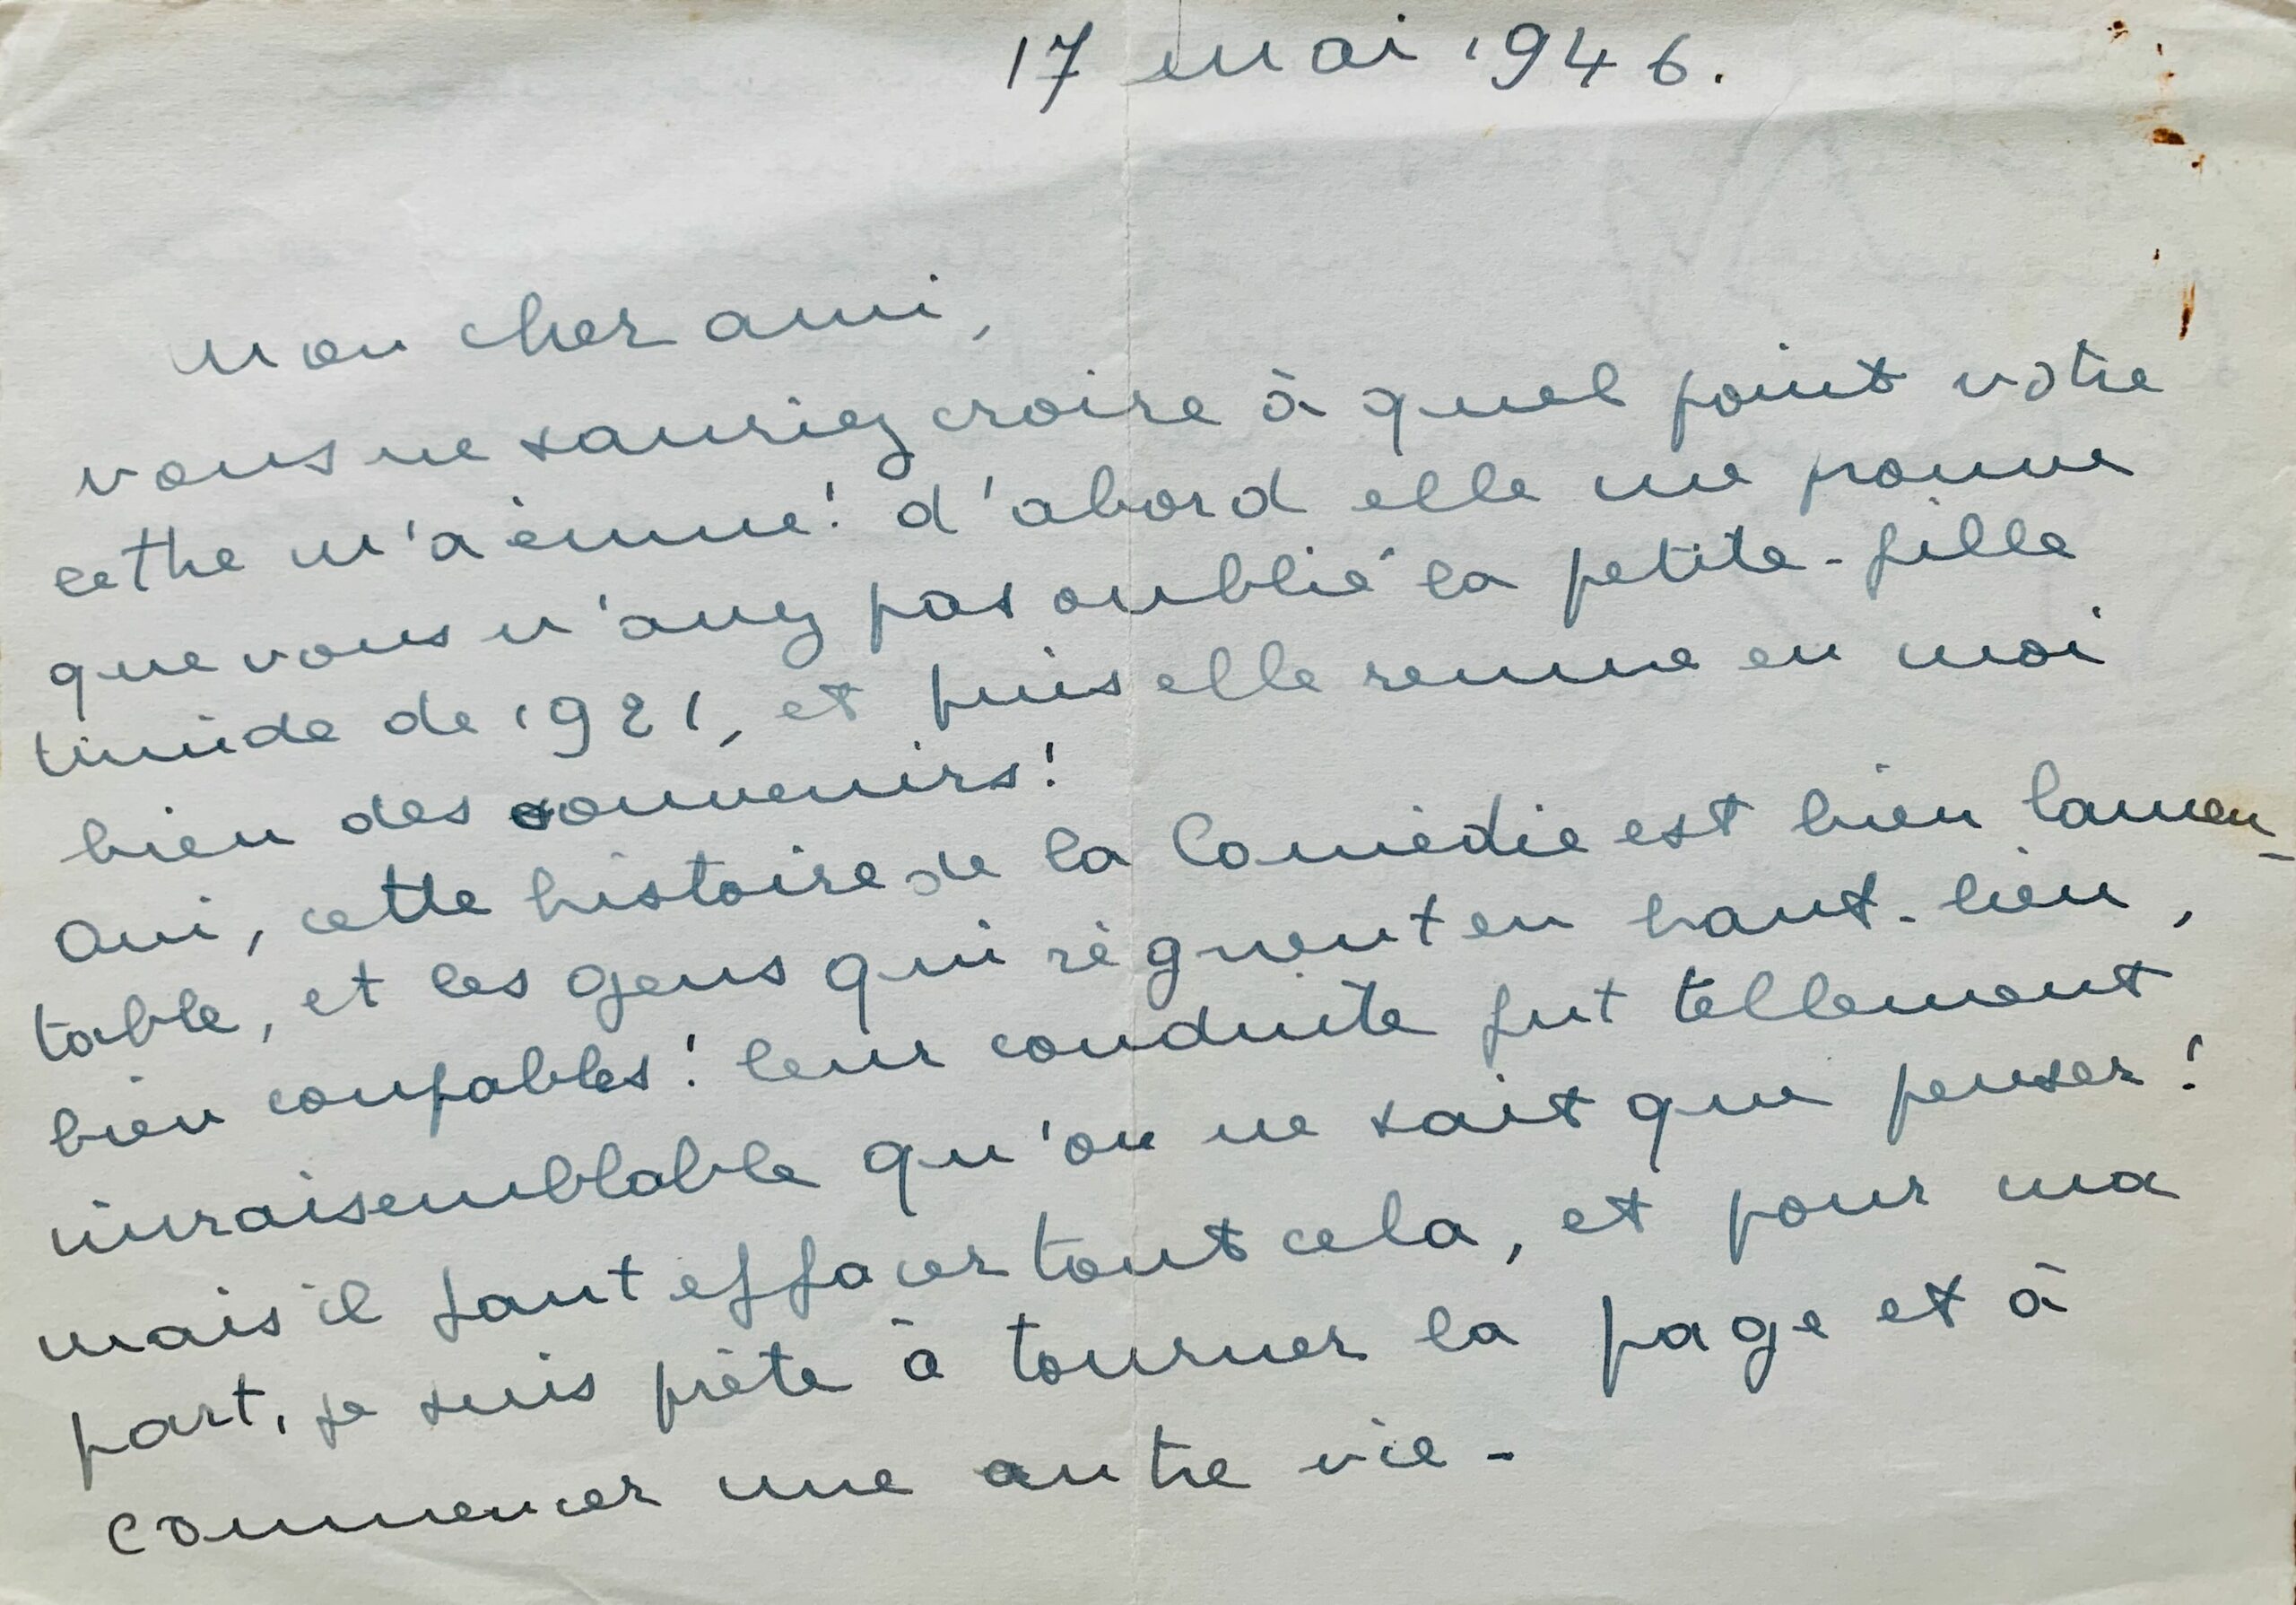 17 mai 1946.
Mon cher ami,
vous ne sauriez croire à quel point votre
lettre m'a émue! d'abord elle me prouve
que vous n'avez pas oublié la petite-fille
timide de 1921, et puis elle remue en moi
bien des souvenirs!
Oui, cette histoire de la Comédie est bien lamen-
table, et les gens qui règnent en haut-lieu,
bien coupables! leur conduite fut tellement
invraisemblable qu'on ne sait que penser!
mais il faut effacer tout cela, et pour ma
part, je suis prête à tourner la page et à
commencer une autre vie -